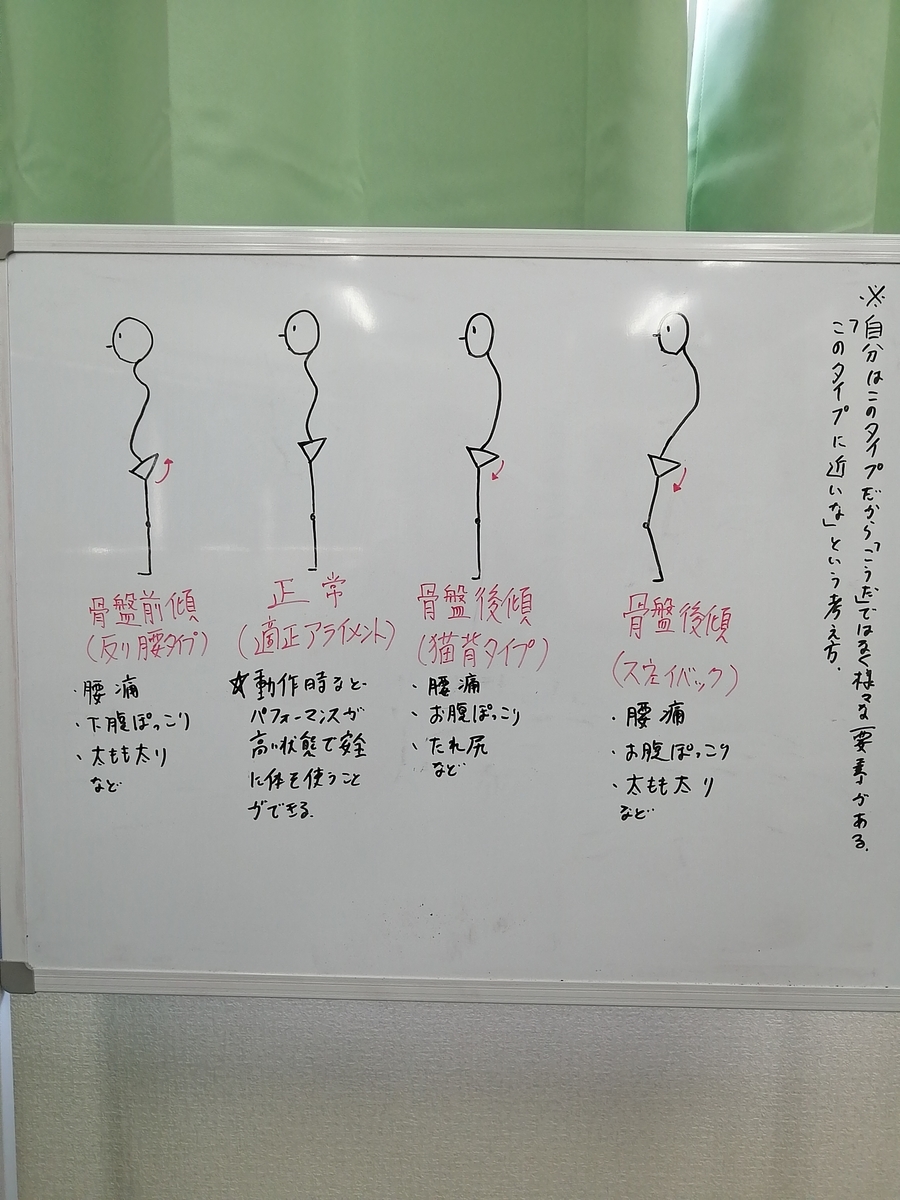 骨盤前傾
(反り腰タイプ)
・腰痛
・下腹ぽっこり
・太もも太り
など
正常
(適正アライメント)
☆動作時など
パフォーマンスが
高い状態で安全
に体を使うこと
ができる.
骨盤後傾
(猫背タイプ)
・腰痛
・お腹ぽっこり
・たれ尻
など
骨盤後傾
(スウェイバック)
・腰痛
・お腹ぽっこり
・太もも太り
など
※自分はこのタイプだから「こうだ」ではなく様々な要素がある.
「このタイプに近いな」という考え方.